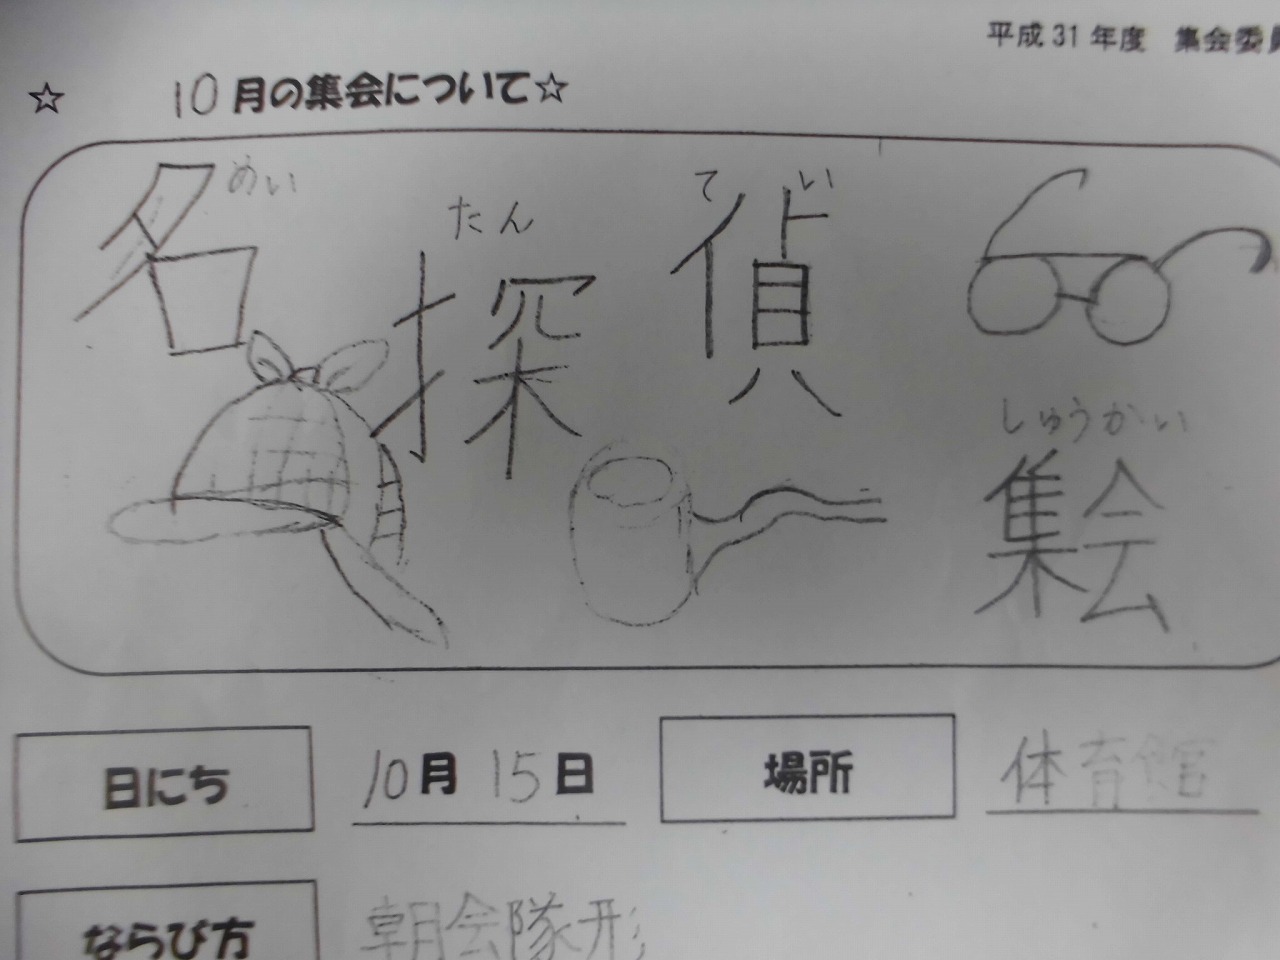 平成31年度　集会委員
☆　10月の集会について☆
めい
名
たん
探
てい
偵
しゅうかい
集会
日にち　10月15日　場所　体育館
ならび方　朝会隊形